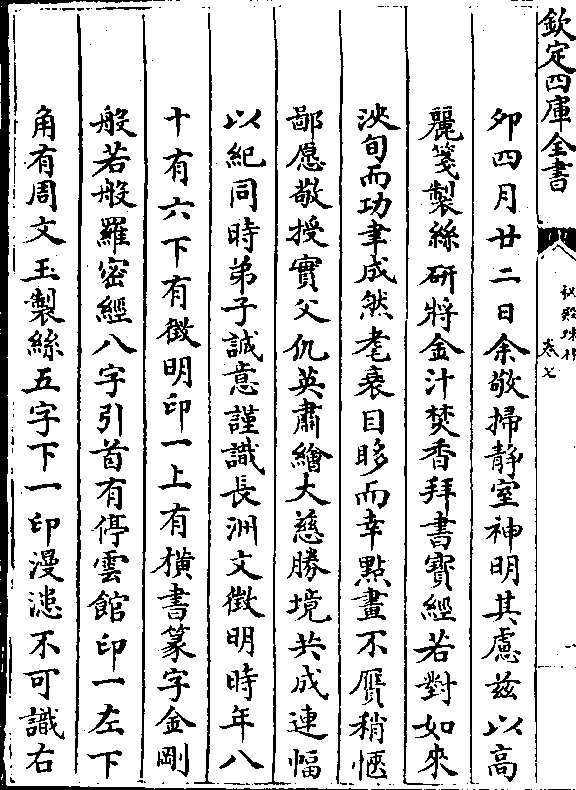 欽定四庫全書
秘殿珠林
卷七
卯四月廿二日余敬掃静室神明其慮兹以高
麗箋製絲研將金汁焚香拜書寳經若對如來
浹旬而功聿成然耄衰目眵而幸點畫不贋稍愜
鄙愿敬授實父仇英肅繪大慈勝境共成連幅
以紀同時弟子誠意謹識長洲文徴明時年八
十有六下有徴明印一上有横書篆字金剛
般若般羅密經八字引首有停雲館印一左下
角有周文玉製絲五字下一印漫漶不可識右